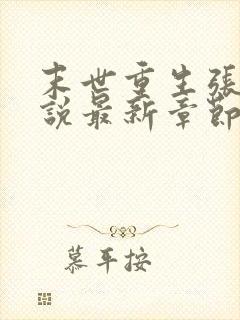 末世重生張
說最新章節
慕平按